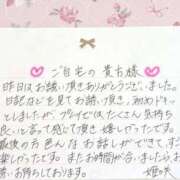 ご自宅の貴方様
昨日はお誘い頂きありがとうございました。
日記などを見てお誘い頂き、初めドキッ
としましたが、プレイではたくさん気持ち
良いと言って感じて頂き嬉しかったです。
最後の方色んなお話しができて、すごく
楽しかったです。またお時間が合いましたらお
誘いお待ちしております。
姫咲